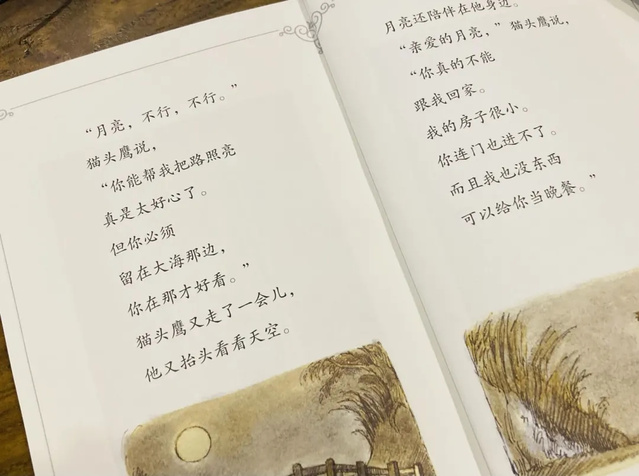 “月亮，不行，不行。”
猫头鹰说，
“你能帮我把路照亮
真是太好心了。
但你必须
留在大海那边，
你在那才好看。”
猫头鹰又走了一会儿，
他又抬头看看天空。
月亮还陪伴在他身边。
“亲爱的月亮，”猫头鹰说，
“你真的不能
跟我回家。
我的房子很小。
你连门也进不了。
而且我也没东西
可以给你当晚餐。”